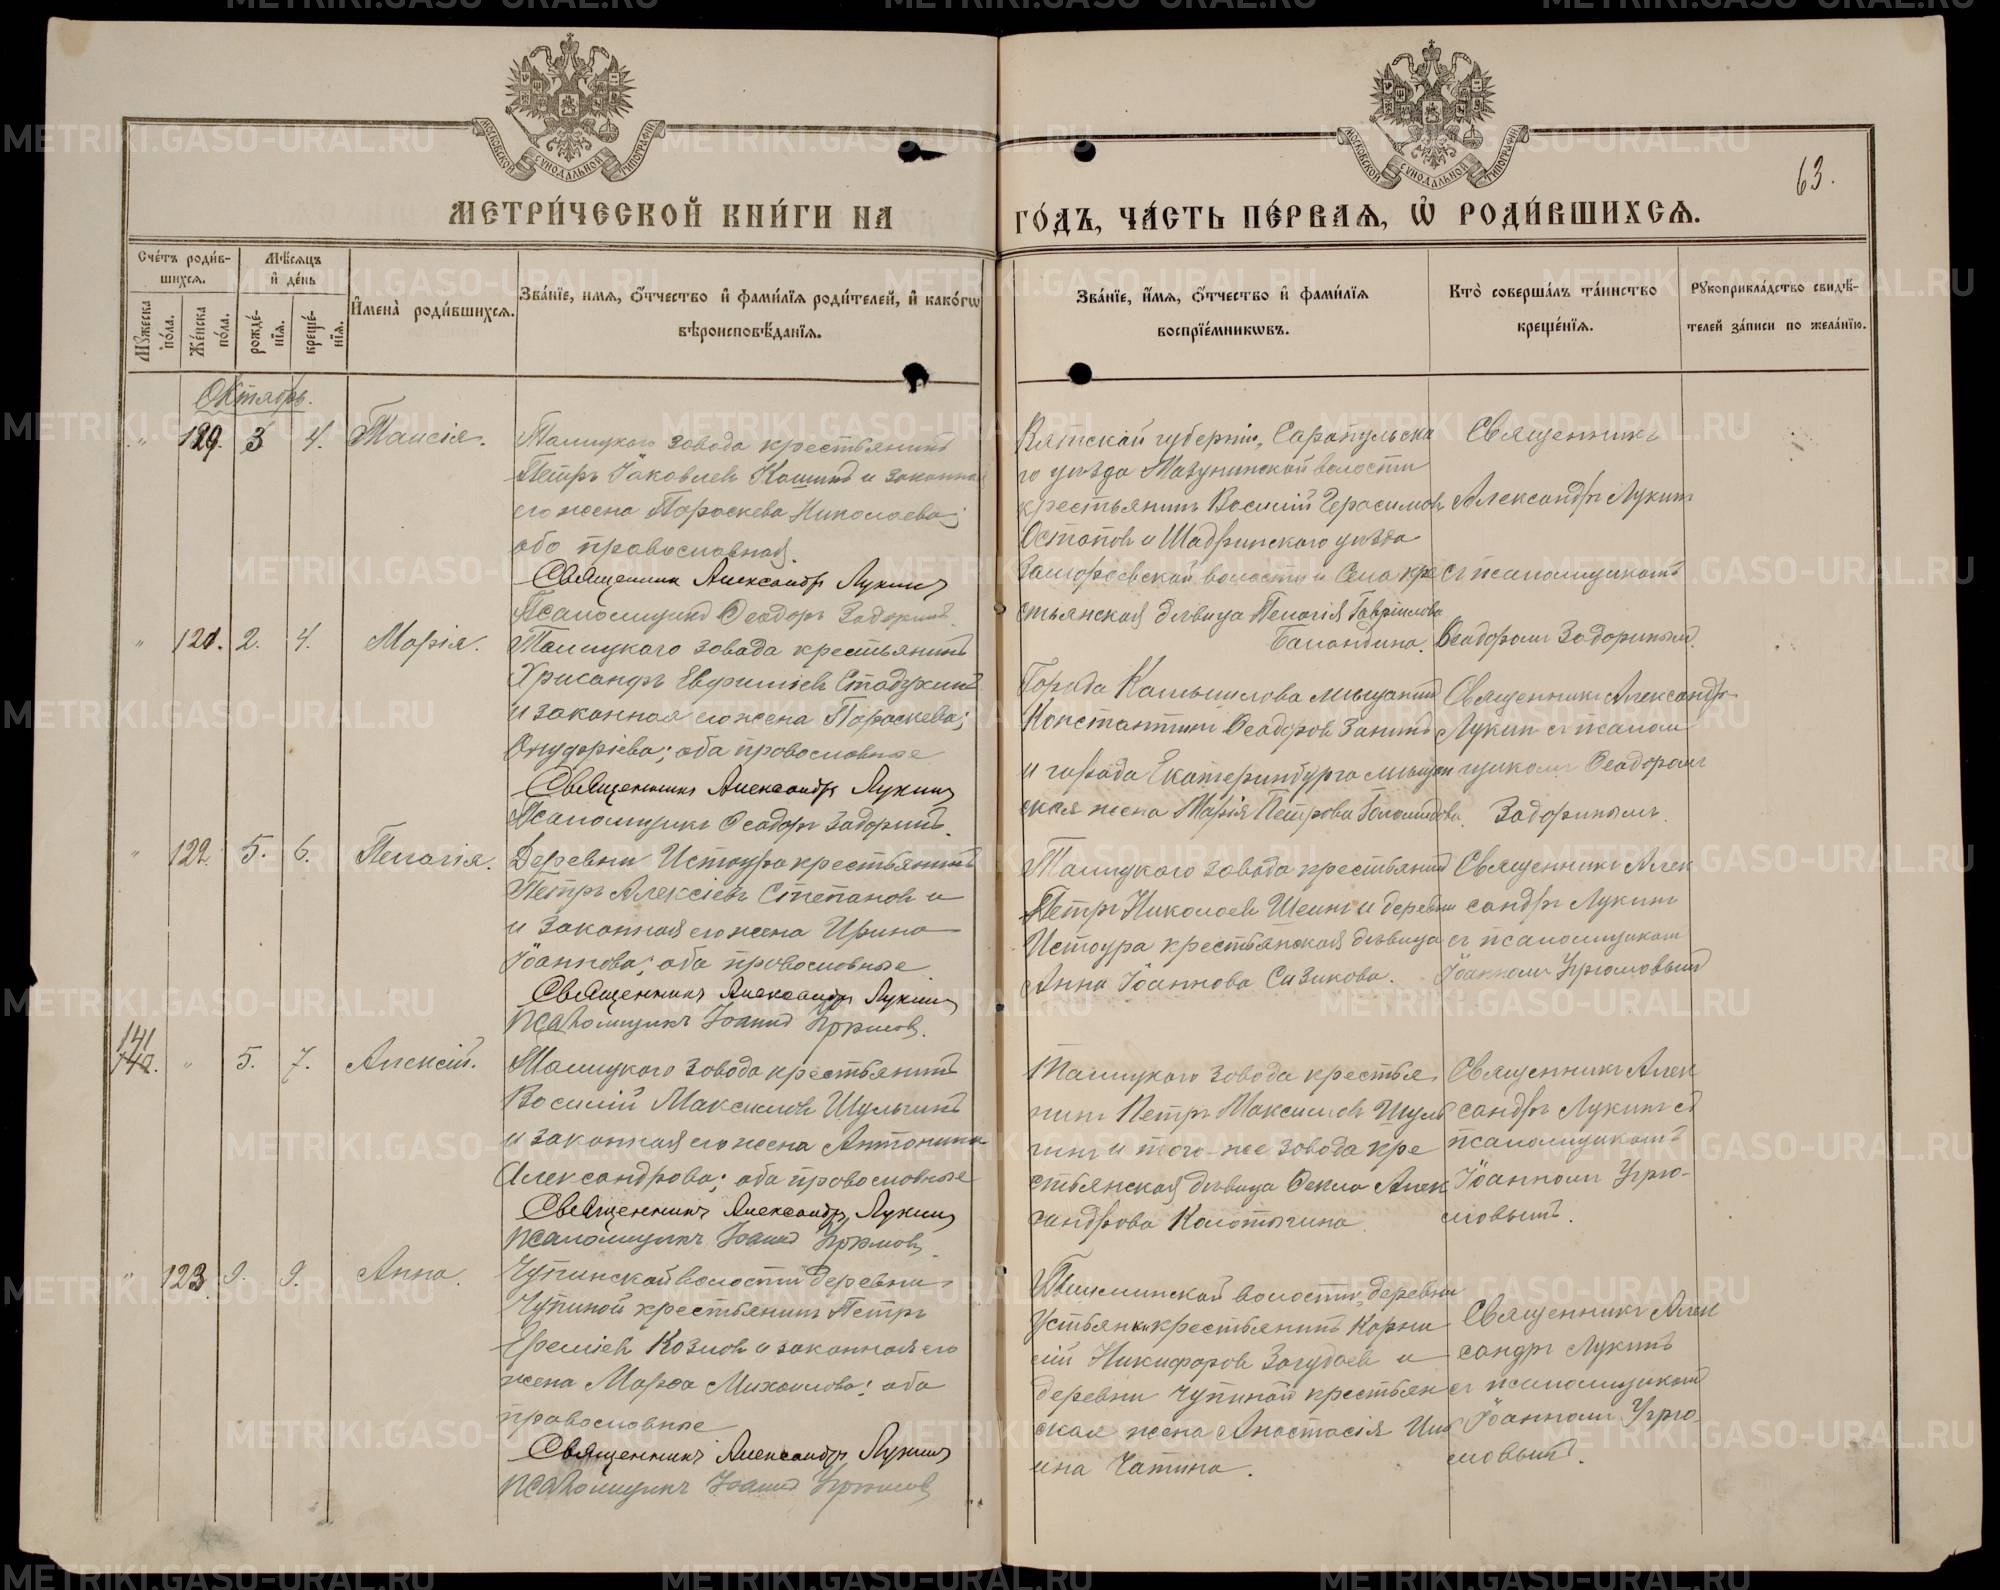 МЕТРИ́ЧЕСКОЙ КНИ́ГИ НА ГО́ДЪ, ЧА́СТЬ ПЕ́РВАЯ, Ѡ РОДИ́ВШИХСЯ.
МОСКОВСКОЙ СѴНОДАЛЬНОЙ ТИПОГРАФІИ
МОСКОВСКОЙ СѴНОДАЛЬНОЙ ТИПОГРАФІИ
63.
Сче́тъ роди́вшихся.
Мꙋжеска по́ла.
Же́нска по́ла.
Мѣ́сяцъ и҆ де́нь
рожде́нїя.
креще́нїя.
И҆мена̀ роди́вшихся.
Зва́нїе, имя, ѻ҆́тчество и҆ фами́лїя роди́телей, и҆ како́гѡ
вѣроисповѣ́данїя.
Зва́нїе, и҆́мя, ѻ҆́тчество и҆ фами́лїя
воспрїе́мникѡвъ.
Кто̀ соверша́лъ та́инство
креще́нїя.
Рꙋкоприкла́дство свидѣ́-
телей за́писи по жела́нїю.
Октябрь.
" 120. 3 4. Таисія.
Талицкого завода крестьянинъ
Петръ Іаковлевъ Кашинъ и законная
его жена Параскева Николаева;
оба православная.
Священник Александръ Лукинъ
Псаломщикъ Ѳеодоръ Задоринъ.
Вятской губерніи, Сарапульска
го уѣзда Мазунинской волости
крестьянинъ Василій Герасимовъ
Остапов и Шадринского уѣзда
волости и Села кре
стьянская дѣвица Пелагія Гавріилова
Баландина.
Священникъ
Александръ Лукинъ
съ псаломщикомъ
Ѳеодоромъ Задоринымъ.
" 121. 2. 4. Марія.
Талицкаго завода крестьянинъ
Хрисанфъ Евфиміевъ Стадухинъ
и законная его жена Параскева;
оба православные
Священникъ Александръ Лукинъ
Псаломщикъ Ѳеодоръ Задоринъ.
Города Камышлова мѣщанинъ
Константинъ Ѳеодоров Занинъ
и города Екатеринбурга мѣщан
ская жена Марія Петрова
Священникъ Александръ
Лукинъ съ псалом
щикомъ Ѳеодоромъ
Задоринымъ.
" 122. 5. 6. Пелагія.
Деревни Истоура крестьянинъ
Петръ Алексіевъ Степановъ и
и законная его жена Ирина
Іоаннова; оба православные
Священникъ Александръ Лукинъ
Псаломщикъ Іоаннъ Угрюмов.
Талицкаго завода крестьянинъ
Петръ Николаевъ Шеинъ и деревни
Истоура крестьянская дѣвица
Анна Іоаннова Сизикова.
Священникъ Алек
сандръ Лукинъ
съ псаломщикомъ
Іоанномъ Угрюмовымъ
141
142. " 5. 7. Алексій.
Талицкого завода крестьянинъ
Василій Максимовъ Шульгинъ
и законная его жена Антонина
Александрова; оба православные
Священникъ Александръ Лукинъ
Псаломщикъ Іоаннъ Угрюмовъ.
Талицкаго завода крестья
нинъ Петръ Максимовъ Шуль
гинъ и того-же завода кре
стьянская дѣвица Ѳекла Алек
сандрова Колотыгина.
Священникъ Алек
сандръ Лукинъ съ
псаломщикомъ
Іоанномъ Угрю-
мовымъ.
" 123. 9. 9. Анна.
Чупинской волости деревни
Чупиной крестьянинъ Петръ
Еремѣев Козловъ и законная его
жена Марѳа Михаилова; оба
православные
Священникъ Александръ Лукинъ
Псаломщикъ Іоаннъ Угрюмовъ
волости, деревни
Устьянки крестьянинъ Корни
лій Никифоровъ и
деревни Чупиной крестьян
ская жена Анастасія Иль
ина Чатина.
Священникъ Алек
сандръ Лукинъ
съ псаломщикомъ
Іоанномъ Угрю-
мовымъ.
METRIKI.GASO-URAL.RU